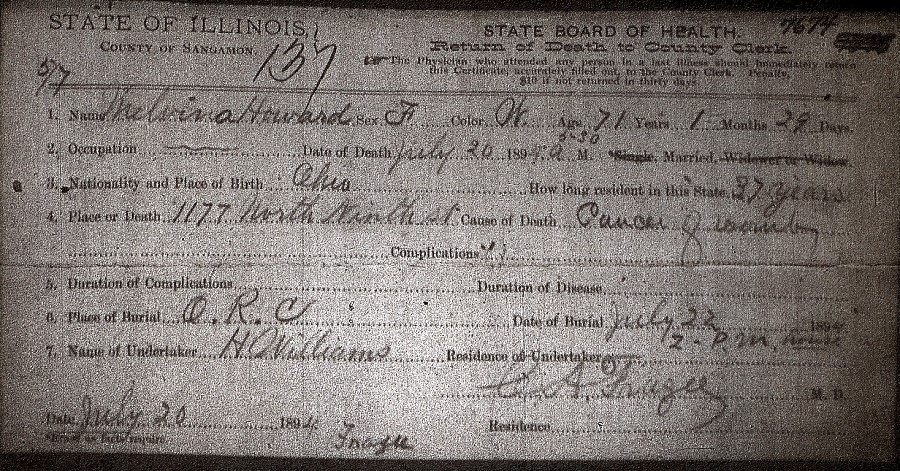 STATE OF ILLINOIS,
COUNTY OF SANGAMON.
137
5/7
STATE BOARD OF HEALTH. 7674
Return of Death to County Clerk.
The Physician who attended any person in a last illness should immediately return
this Certificate, accurately filled out, to the County Clerk. Penalty,
$10 if not returned in thirty days.
1. Name Melvina Howard Sex F Color W Age 71 Years 1 Months 29 Days.
2. Occupation Date of Death July 20 1894 M. Single, Married, Widower or Widow.
3. Nationality and Place of Birth Ohio How long resident in this State 37 years
4. Place of Death 1177 North Ninth st Cause of Death Cancer of womb
Complications
5. Duration of Complications Duration of Disease
6. Place of Burial O. R. C Date of Burial July 22 1894
2 - P.M. house
7. Name of Undertaker H Williams Residence of Undertaker
Frazee M. D.
Date July 20 1894 Residence
Frazee